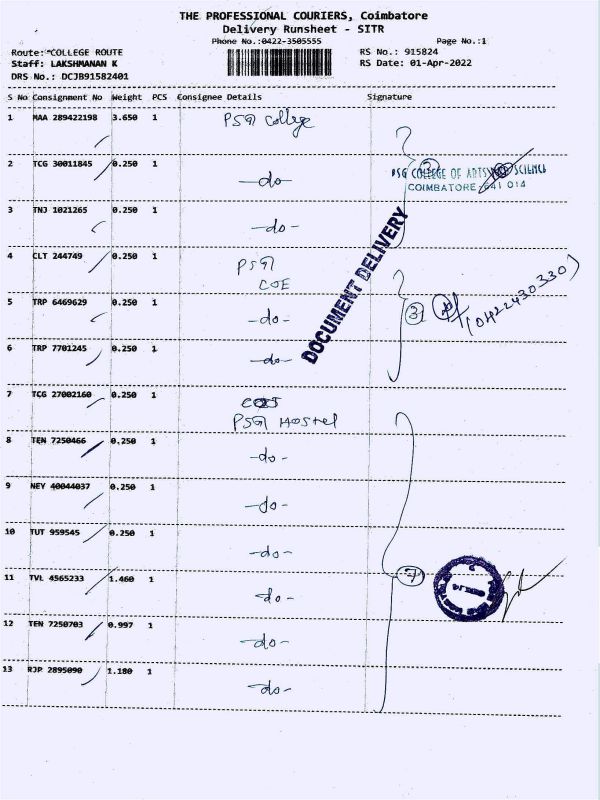 THE PROFESSIONAL COURIERS, Coimbatore
Delivery Runsheet - SITR
Phone No.:0422-3505555 Page No.:1
Route: COLLEGE ROUTE RS No.: 915824
Staff: LAKSHMANAN K RS Date: 01-Apr-2022
DRS No.: DCJB91582401
S No Consignment No Weight PCS Consignee Details Signature
1 MAA 289422198 3.650 1 PSG College
2 TCG 30011845 0.250 1 -do-
PSG COLLEGE OF ARTS SCIENCE
COIMBATORE-641 014
3 TNJ 1021265 0.250 1 -do-
DOCUMENT DELIVERY
4 CLT 244749 0.250 1 PSG
COE
5 TRP 6469629 0.250 1 -do- 3
6 TRP 7701245 0.250 1 -do-
7 TCG 27002160 0.250 1
PSG Hostel
8 TEN 7250466 0.250 1 -do-
9 NEY 40044037 0.250 1 -do-
10 TUT 959545 0.250 1 -do-
11 TVL 4565233 1.460 1 -do- 7
12 TEN 7250703 0.997 1 -do-
13 RJP 2895090 1.180 1 -do-